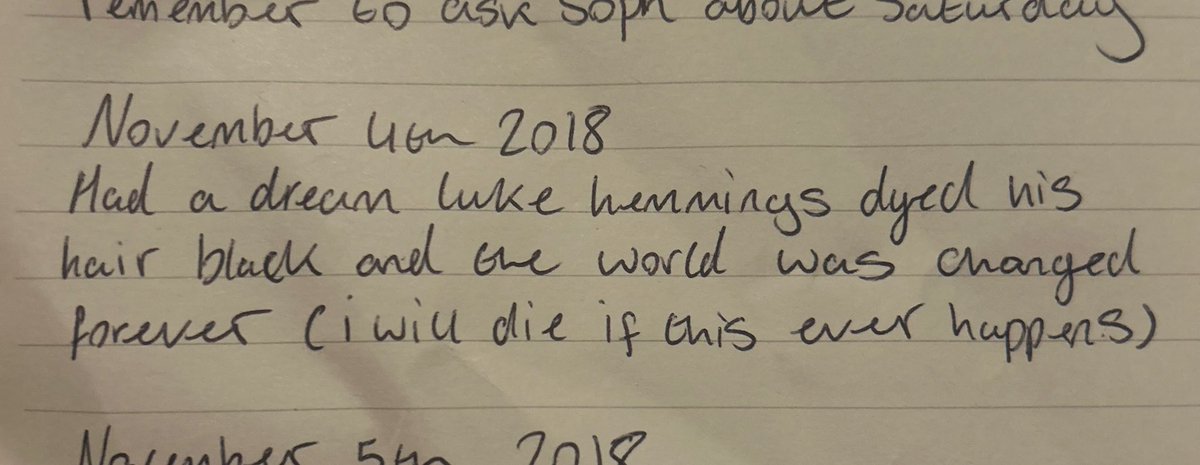 remember to ask soph about saturday
November 4th 2018
Had a dream luke hemmings dyed his
hair black and the world was changed
forever (i will die if this ever happens)
November 5th 2018